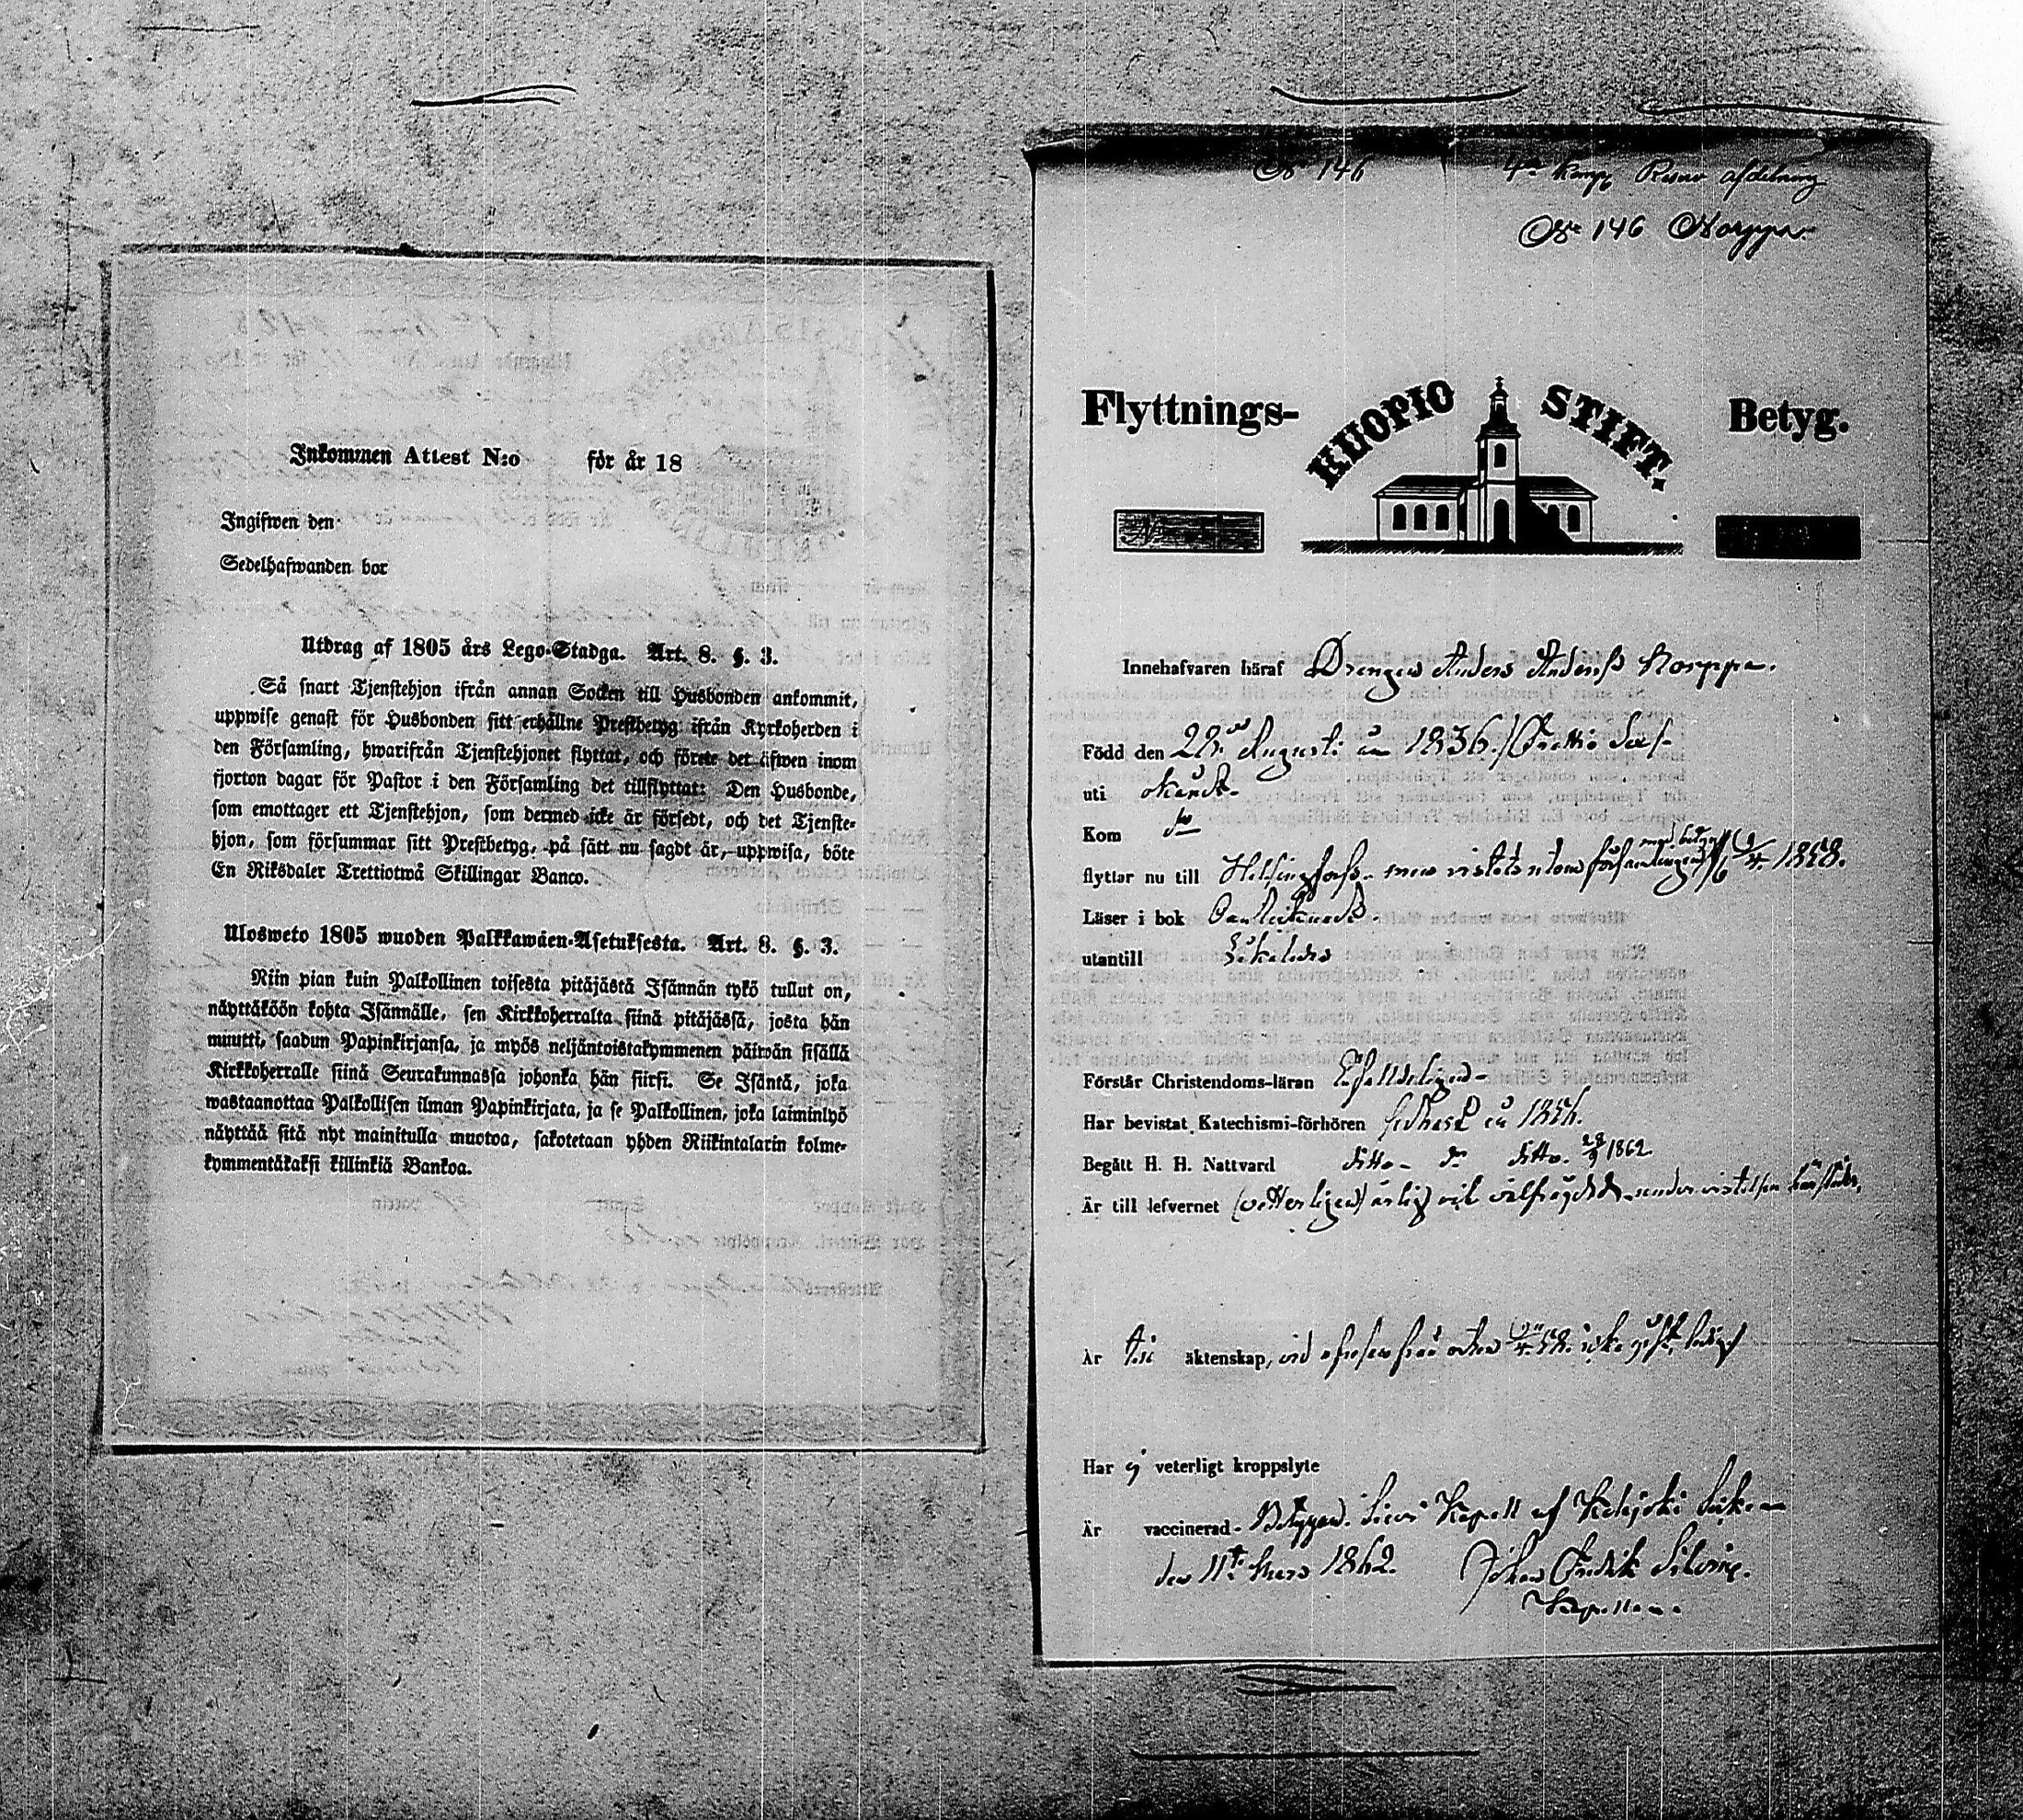 Inkommen Attest N:o för år 18
Ingifwen den
Sedelhafwanden bor
Utdrag af 1805 års Lego-Stadga. Art. 8. §. 3.
Så snart Tjenstehjon ifrån annan Socken till Husbonden ankommit,
uppwise genast för Husbonden sitt erhållne Prestbetyg ifrån Kyrkoherden i
den Församling, hwarifrån Tjenstehjonet flyttat, och förete det äfwen inom
fjorton dagar för Pastor i den Församling det tillflyttat: Den Husbonde,
som emottager ett Tjenstehjon, som dermed icke är försedt, och det Tjenste-
hjon, som försummar sitt Prestbetyg, på sätt nu sagdt är, uppwisa, böte
En Riksdaler Trettiotwå Skillingar Banco.
Ulosweto 1805 wuoden Palkkawäen-Asetuksesta. Art. 8. §. 3.
Niin pian kuin Palkollinen toisesta pitäjästä Isännän tykö tullut on,
näyttäköön kohta Isännälle, sen Kirkkoherralta siinä pitäjässä, josta hän
muutti, saadun Papinkirjansa, ja myös neljäntoistakymmenen päiwän sisällä
Kirkkoherralle siinä Seurakunnassa johonka hän siirsi. Se Isäntä, joka
wastaanottaa Palkollisen ilman Papinkirjata, ja se Palkollinen, joka laiminlyö
näyttää sitä nyt mainitulla muotoa, sakotetaan yhden Riikintalarin kolme-
kymmentäkaksi killinkiä Bankoa.
N 146 4de Komp Reserv afdelning
No 146 Norppa.
Flyttnings- KUOPIO STIFT. Betyg.
Innehafvaren häraf Drengen Anders Anderss Norppa.
Född den 28. Augusti år 1836.
uti okändt
Kom
flyttar nu till Helsingfors men vistats utom församlingen med betyg 1858.
Läser i bok
utantill
Förstår Christendoms-läran
Har bevistat Katechismi-förhören sednast år 1856.
Begått H. H. Nattvard ditto do ditto. 1862.
Är till lefvernet ärlig och välfräjdad under vistelsen härstädes,
Är till äktenskap, vid afresen icke gift, ledig
Har ej veterligt kroppslyte
Är vaccinerad. Betygar. Sievi Kapell af Kalajoki Socken
den 11te Mars 1862. Johan Fredrik
Kapellan.